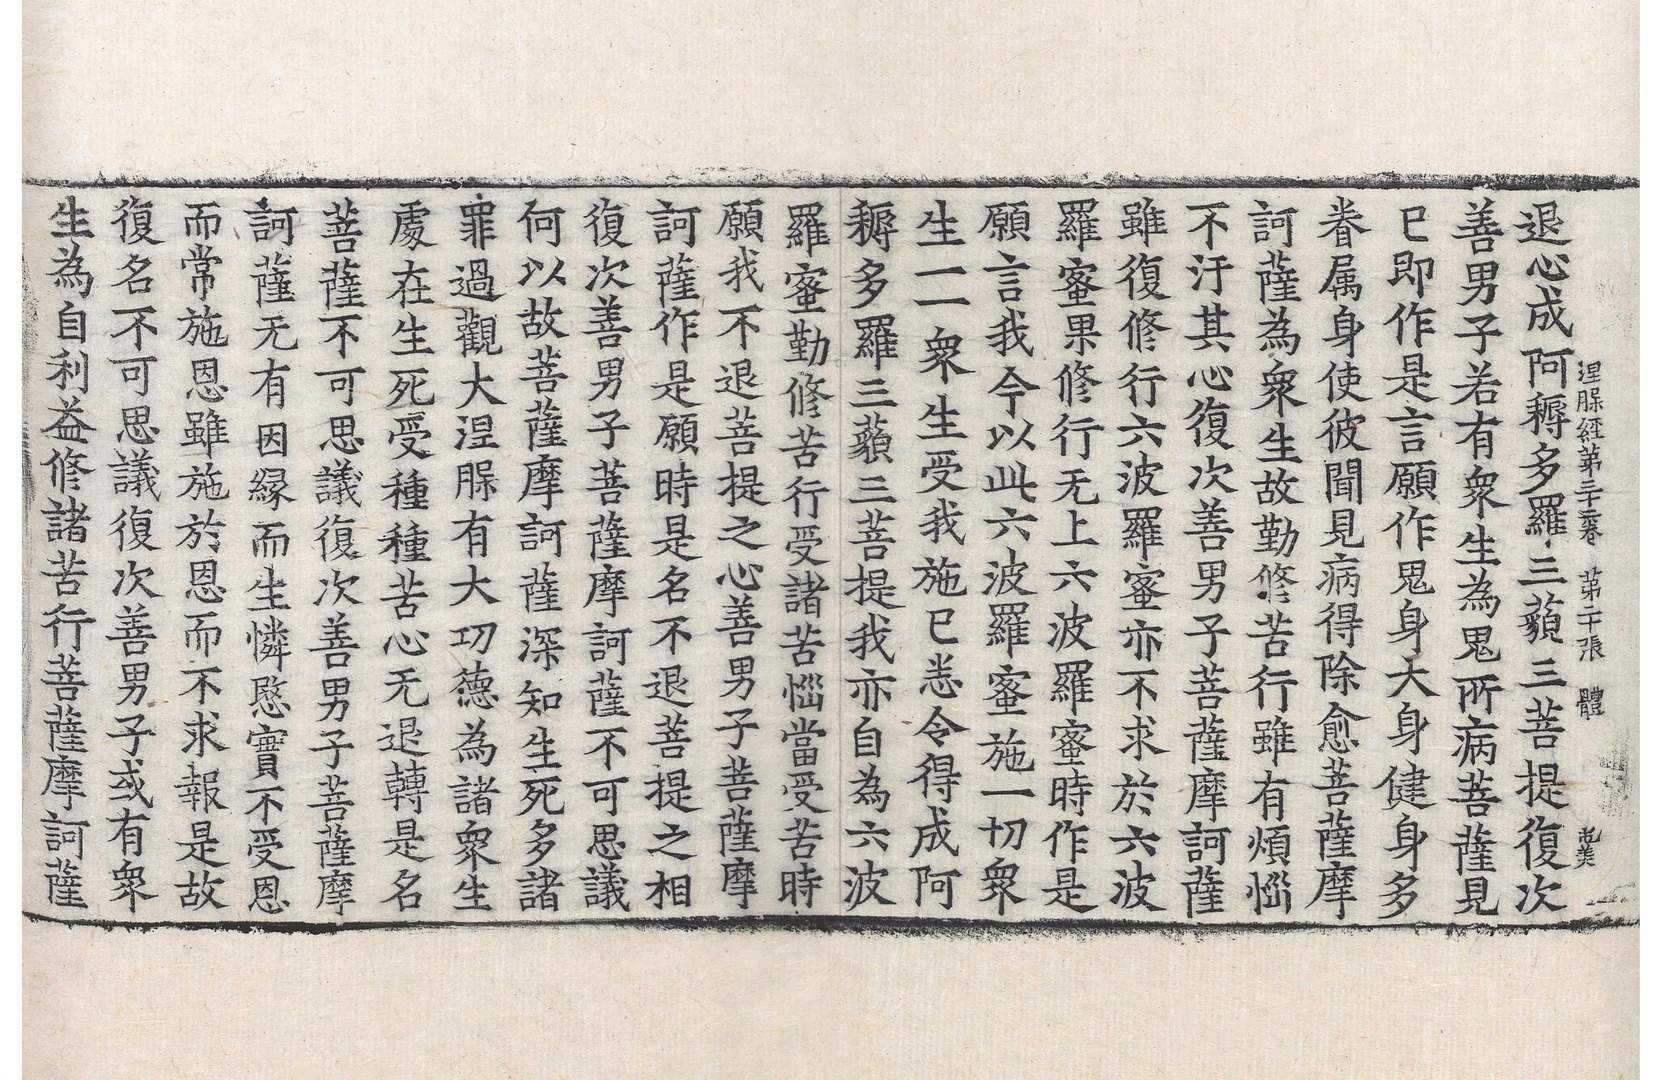 涅脲經第三十二卷 苐二十張 體
退心成阿耨多羅三藐三菩提復次
善男子若有衆生為鬼所病菩薩見
已即作是言願作鬼身大身健身多
眷属身使彼聞見病得除愈菩薩摩
訶薩為衆生故勤修苦行雖有煩惱
不汙其心復次善男子菩薩摩訶薩
雖復修行六波羅蜜亦不求於六波
羅蜜果修行无上六波羅蜜時作是
願言我今以此六波羅蜜施一切衆
生一一衆生受我施已悉令得成阿
耨多羅三藐三菩提我亦自為六波
羅蜜勤修苦行受諸苦惱當受苦時
願我不退菩提之心善男子菩薩摩
訶薩作是願時是名不退菩提之相
復次善男子菩薩摩訶薩不可思議
何以故菩薩摩訶薩深知生死多諸
罪過觀大涅脲有大功德為諸衆生
處在生死受種種苦心无退轉是名
菩薩不可思議復次善男子菩薩摩
訶薩无有因緣而生憐愍實不受恩
而常施恩雖施於恩而不求報是故
復名不可思議復次善男子或有衆
生為自利益修諸苦行菩薩摩訶薩